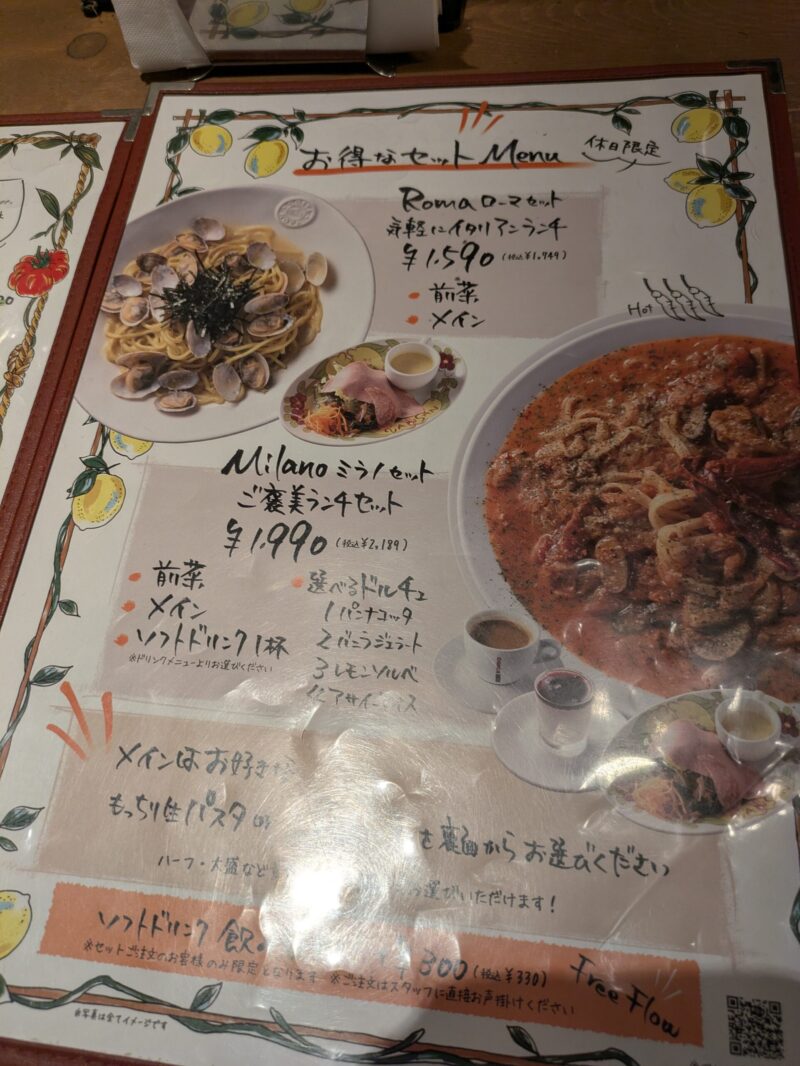 お得なセット Menu
休日限定
Roma ローマセット
気軽にイタリアンランチ
¥1,590 (税込¥1,749)
・前菜
・メイン
Hot
Milano ミラノセット
ご褒美ランチセット
¥1,990 (税込¥2,189)
・前菜
・メイン
・ソフトドリンク1杯
※ドリンクメニューよりお選びください
・選べるドルチェ
1パンナコッタ
2バニラジェラート
3レモンソルベ
メインはお好きな
もっちり生パスタ
を裏面からお選びください
ハーフ・大盛など
お選びいただけます!
ソフトドリンク 飲
¥300 (税込¥330)
Free Flow
※セットご注文のお客様のみ限定となります ※ご注文はスタッフに直接お声掛けください
※写真は全てイメージです